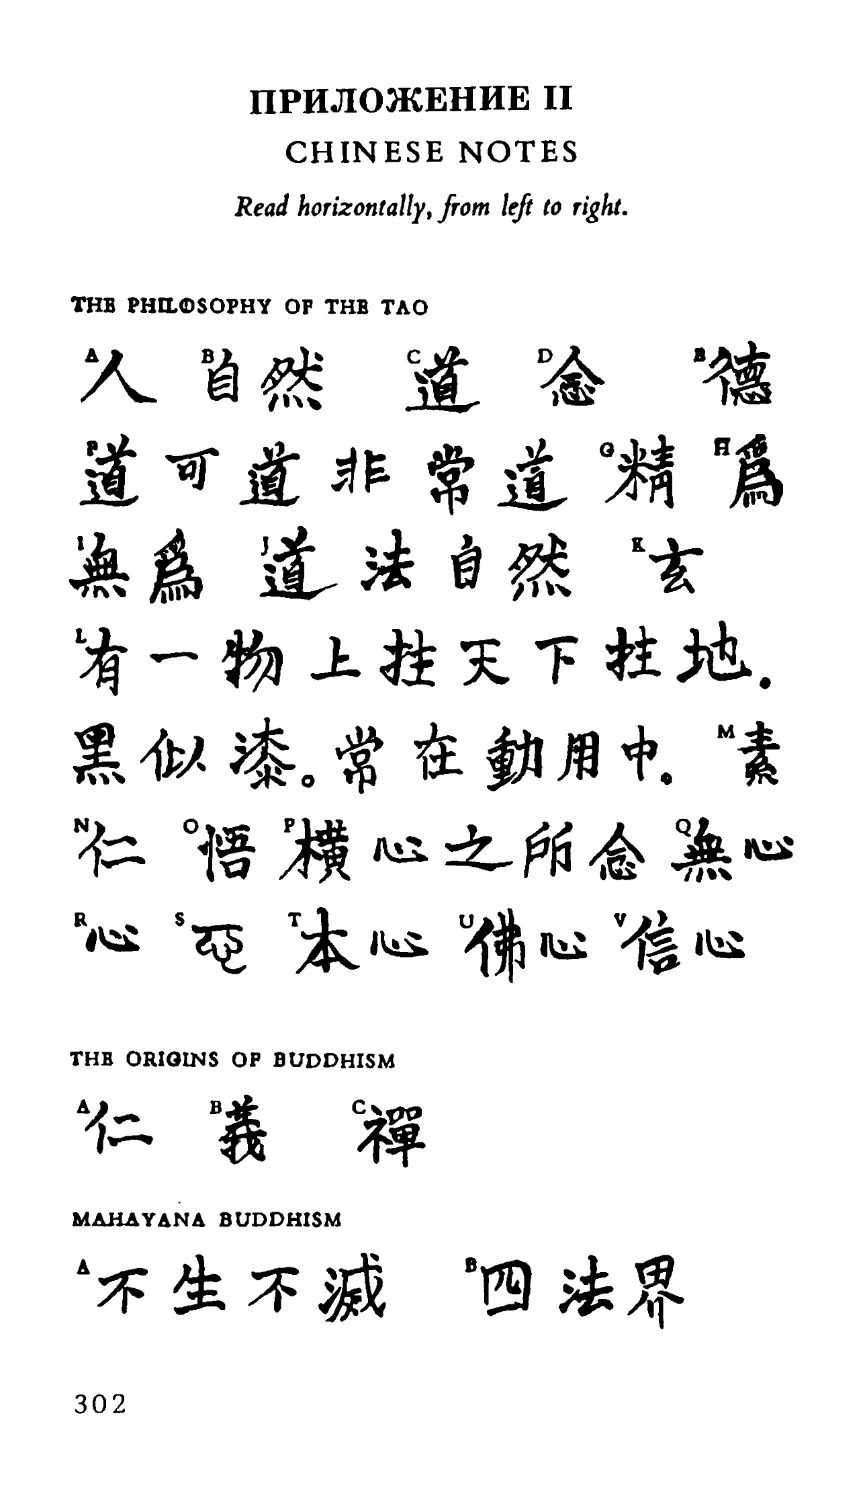 ПРИЛОЖЕНИЕ II
CHINESE NOTES
Read horizontally, from left to right.
THE PHILOSOPHY OF THE TAO
A人 B自然 C道 D念 E德
F道可道非常道 G精 H爲
I無爲 J道法自然 K玄
L有一物上拄天下拄地.
黑似漆。常在動用中。 M素
N仁 O悟 P橫心之所念 Q無心
R心 S T本心 U佛心 V信心
THE ORIGINS OF BUDDHISM
A仁 B義 C禪
MAHAYANA BUDDHISM
A不生不滅 B四法界
302